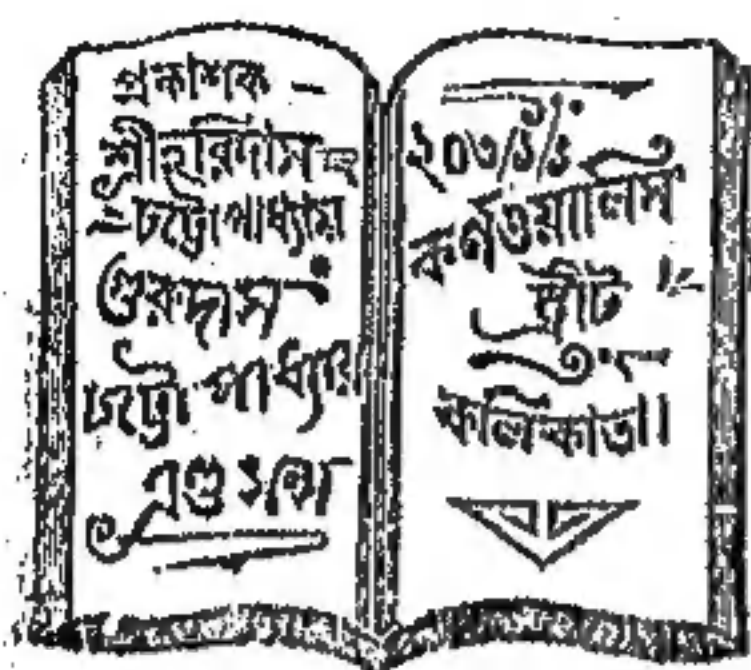 প্রকাশক —
শ্রীহরিদাস
চট্টোপাধ্যায়
গুরুদাস
চট্টোপাধ্যায়
এণ্ড সন্স
২০৩/১/১
কর্ণওয়ালিস
ষ্ট্রীট
কলিকাতা।